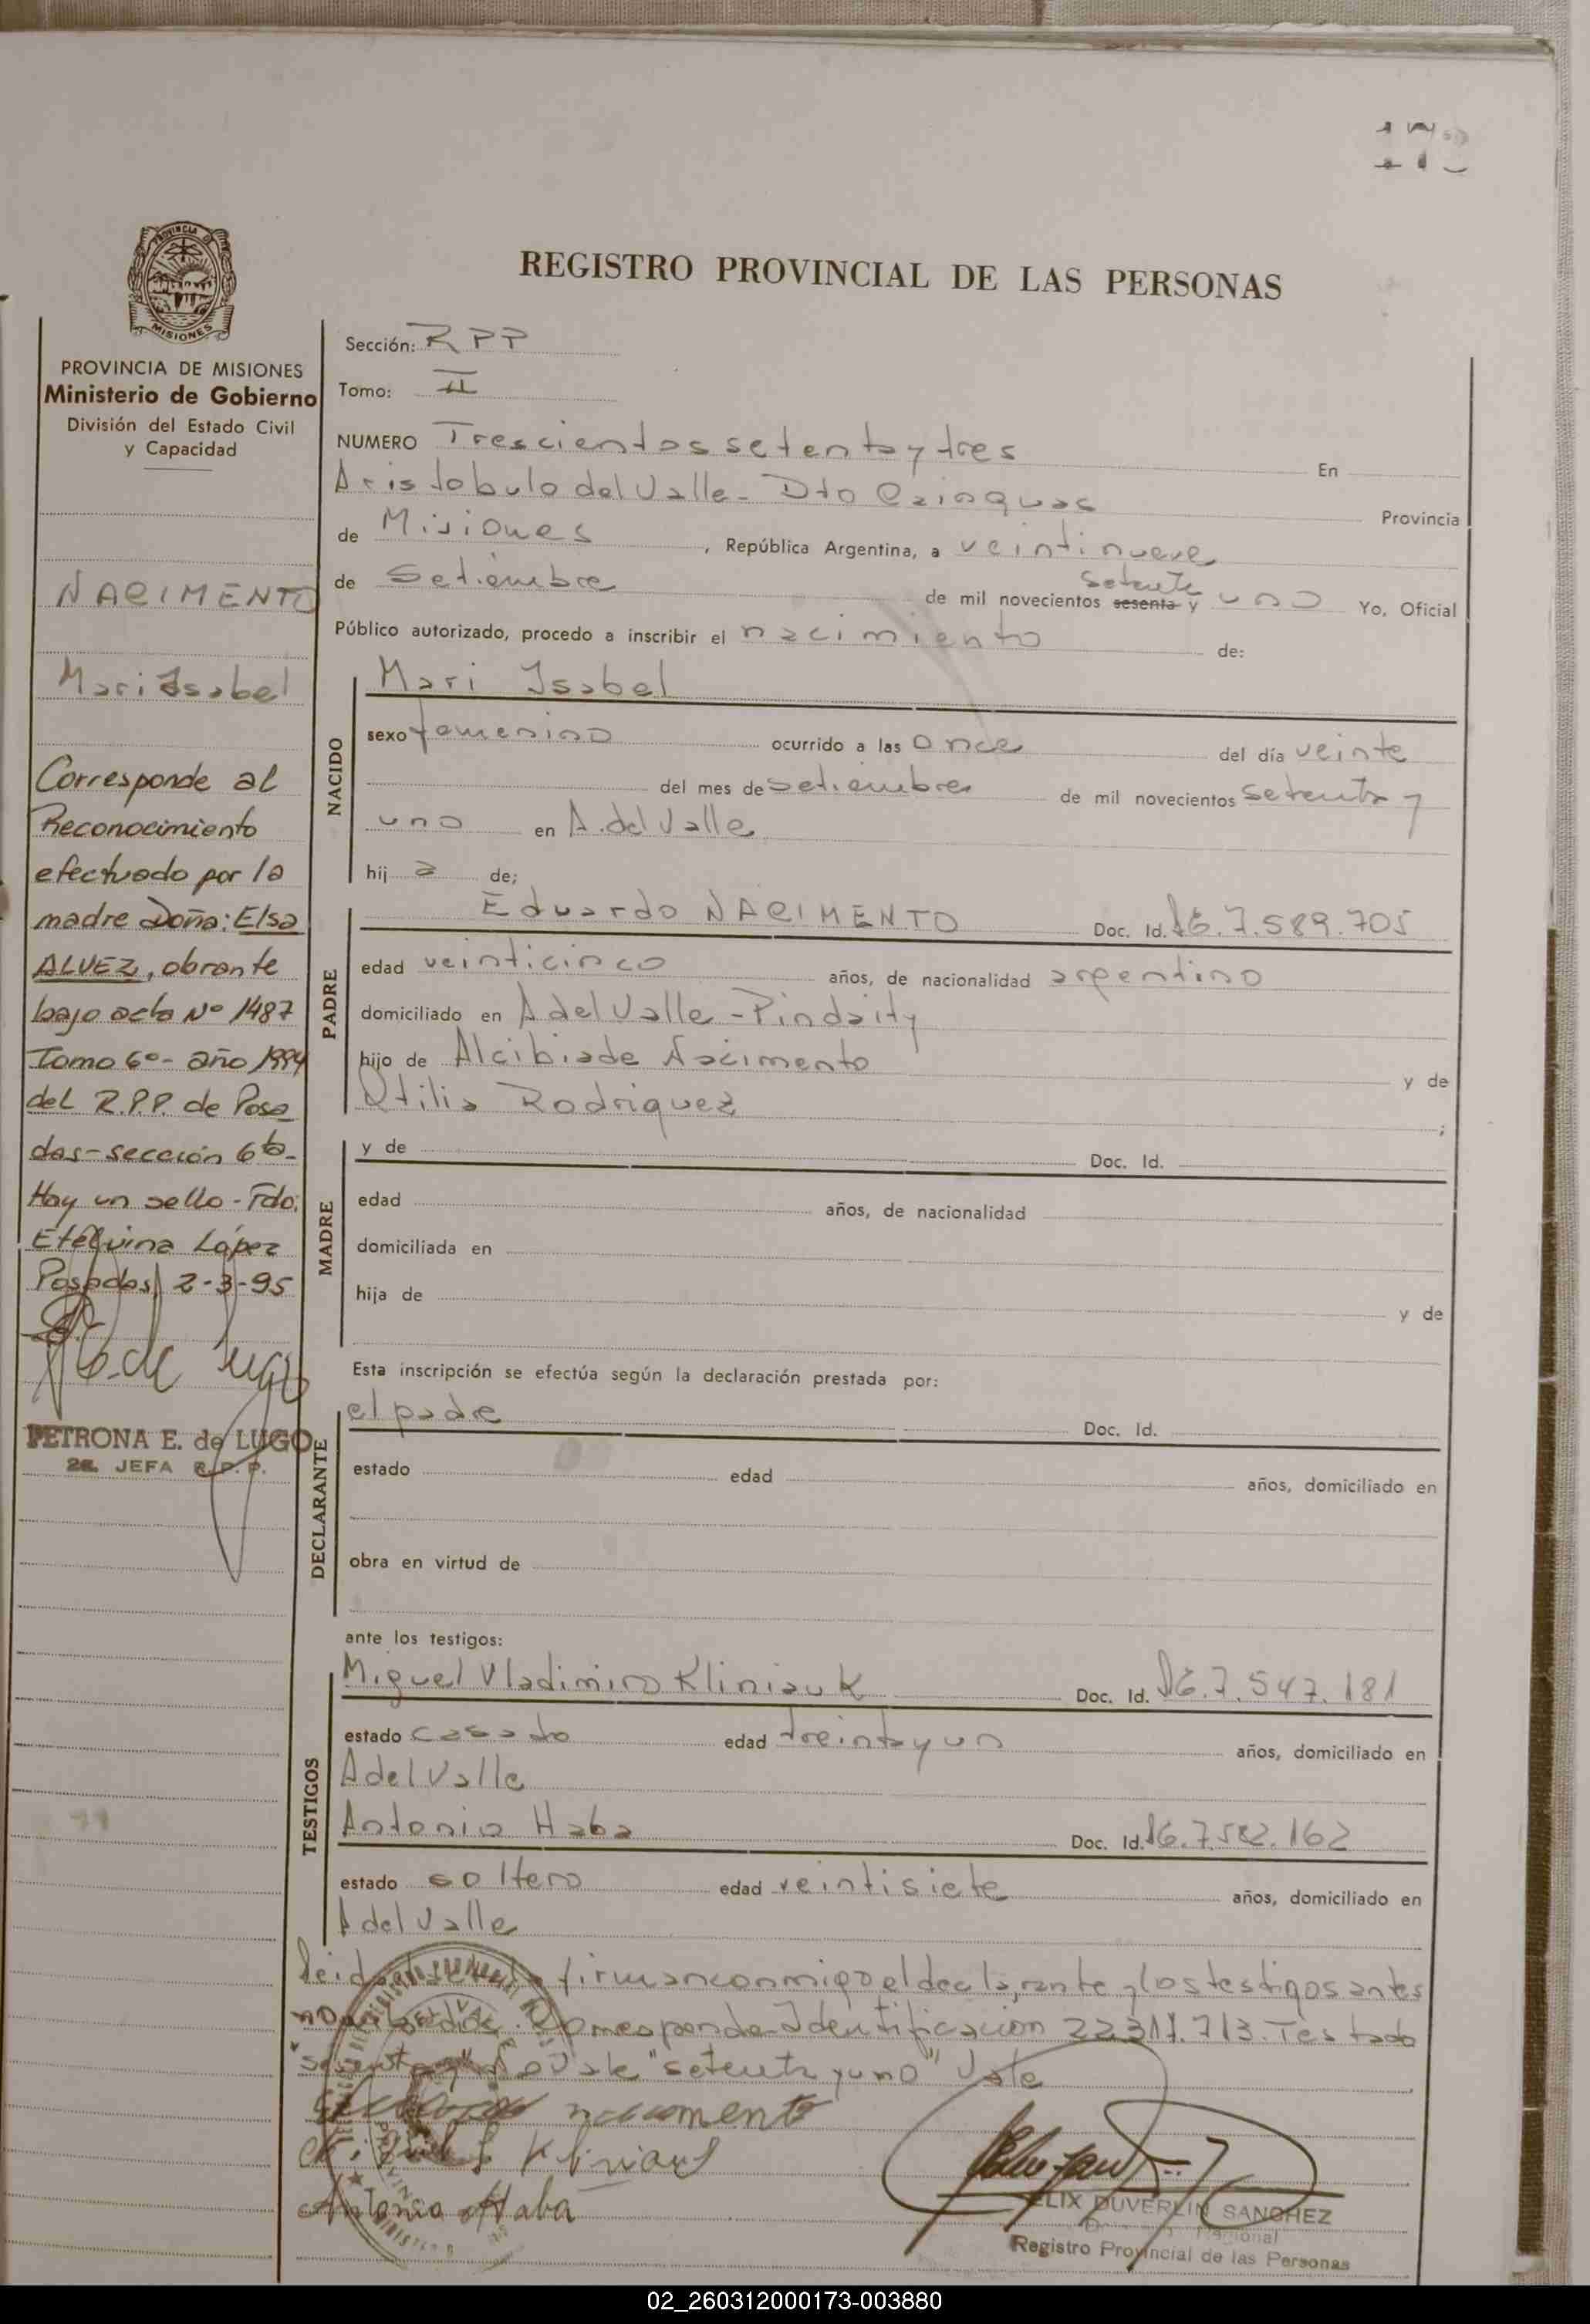 173
REGISTRO PROVINCIAL DE LAS PERSONAS
MISIONES
PROVINCIA DE MISIONES
Ministerio de Gobierno
División del Estado Civil
y Capacidad
NACIMENTO
Mari Isabel
Corresponde al
Reconocimiento
efectuado por la
madre Doña: Elsa
ALVEZ, obrante
bajo acta Nº 1487
Tomo 6º- año 1994
del R.P.P. de Posa
das-sección 6ta-
Hay un sello - Fdo:
Etelvina López
Posadas, 2-3-95
PETRONA E. de LUGO
2a. JEFA R.P.P.
Sección: RPP
Tomo: II
NUMERO Trescientos setenta y tres En
Aristobulo del Valle - Dto Cainguas Provincia
de Misiones, República Argentina, a veintinueve
de Setiembre de mil novecientos sesenta y setenta uno Yo, Oficial
Público autorizado, procedo a inscribir el nacimiento de:
NACIDO
Mari Isabel
sexo femenino ocurrido a las once del día veinte
del mes de setiembre de mil novecientos setenta y
uno en A. del Valle
hija de;
PADRE
Eduardo NACIMENTO Doc. Id. 7.589.705
edad veinticinco años, de nacionalidad argentino
domiciliado en A del Valle - Pindaity
hijo de Alcibiade Nacimento y de
Otilia Rodriguez ;
MADRE
y de Doc. Id.
edad años, de nacionalidad
domiciliada en
hija de y de
Esta inscripción se efectúa según la declaración prestada por:
DECLARANTE
el padre Doc. Id.
estado edad años, domiciliado en
obra en virtud de
ante los testigos:
TESTIGOS
Miguel Vladimiro Kliniauk Doc. Id. 7.547.181
estado casado edad treinta y un años, domiciliado en
A del Valle
Antonio Haba Doc. Id. 7.582.162
estado soltero edad veintisiete años, domiciliado en
A del Valle
Leida firman conmigo el declarante y los testigos antes
Corresponde Identificacion 22.317.713. Testado
"sesenta y" No Vale "setenta y uno" Vale
nacimento
Antonio Haba
FELIX DUVERLIN SANCHEZ
Registro Provincial de las Personas
02_260312000173-003880